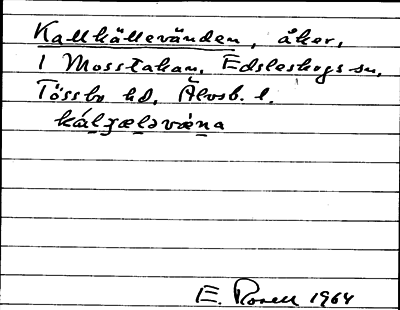 Kallkällevänden, åker,
1 Mosstakan, Edsleskogs sn,
Tössbo hd, Älvsb. l.
kálʒæləvæna
E. Rosell 1964